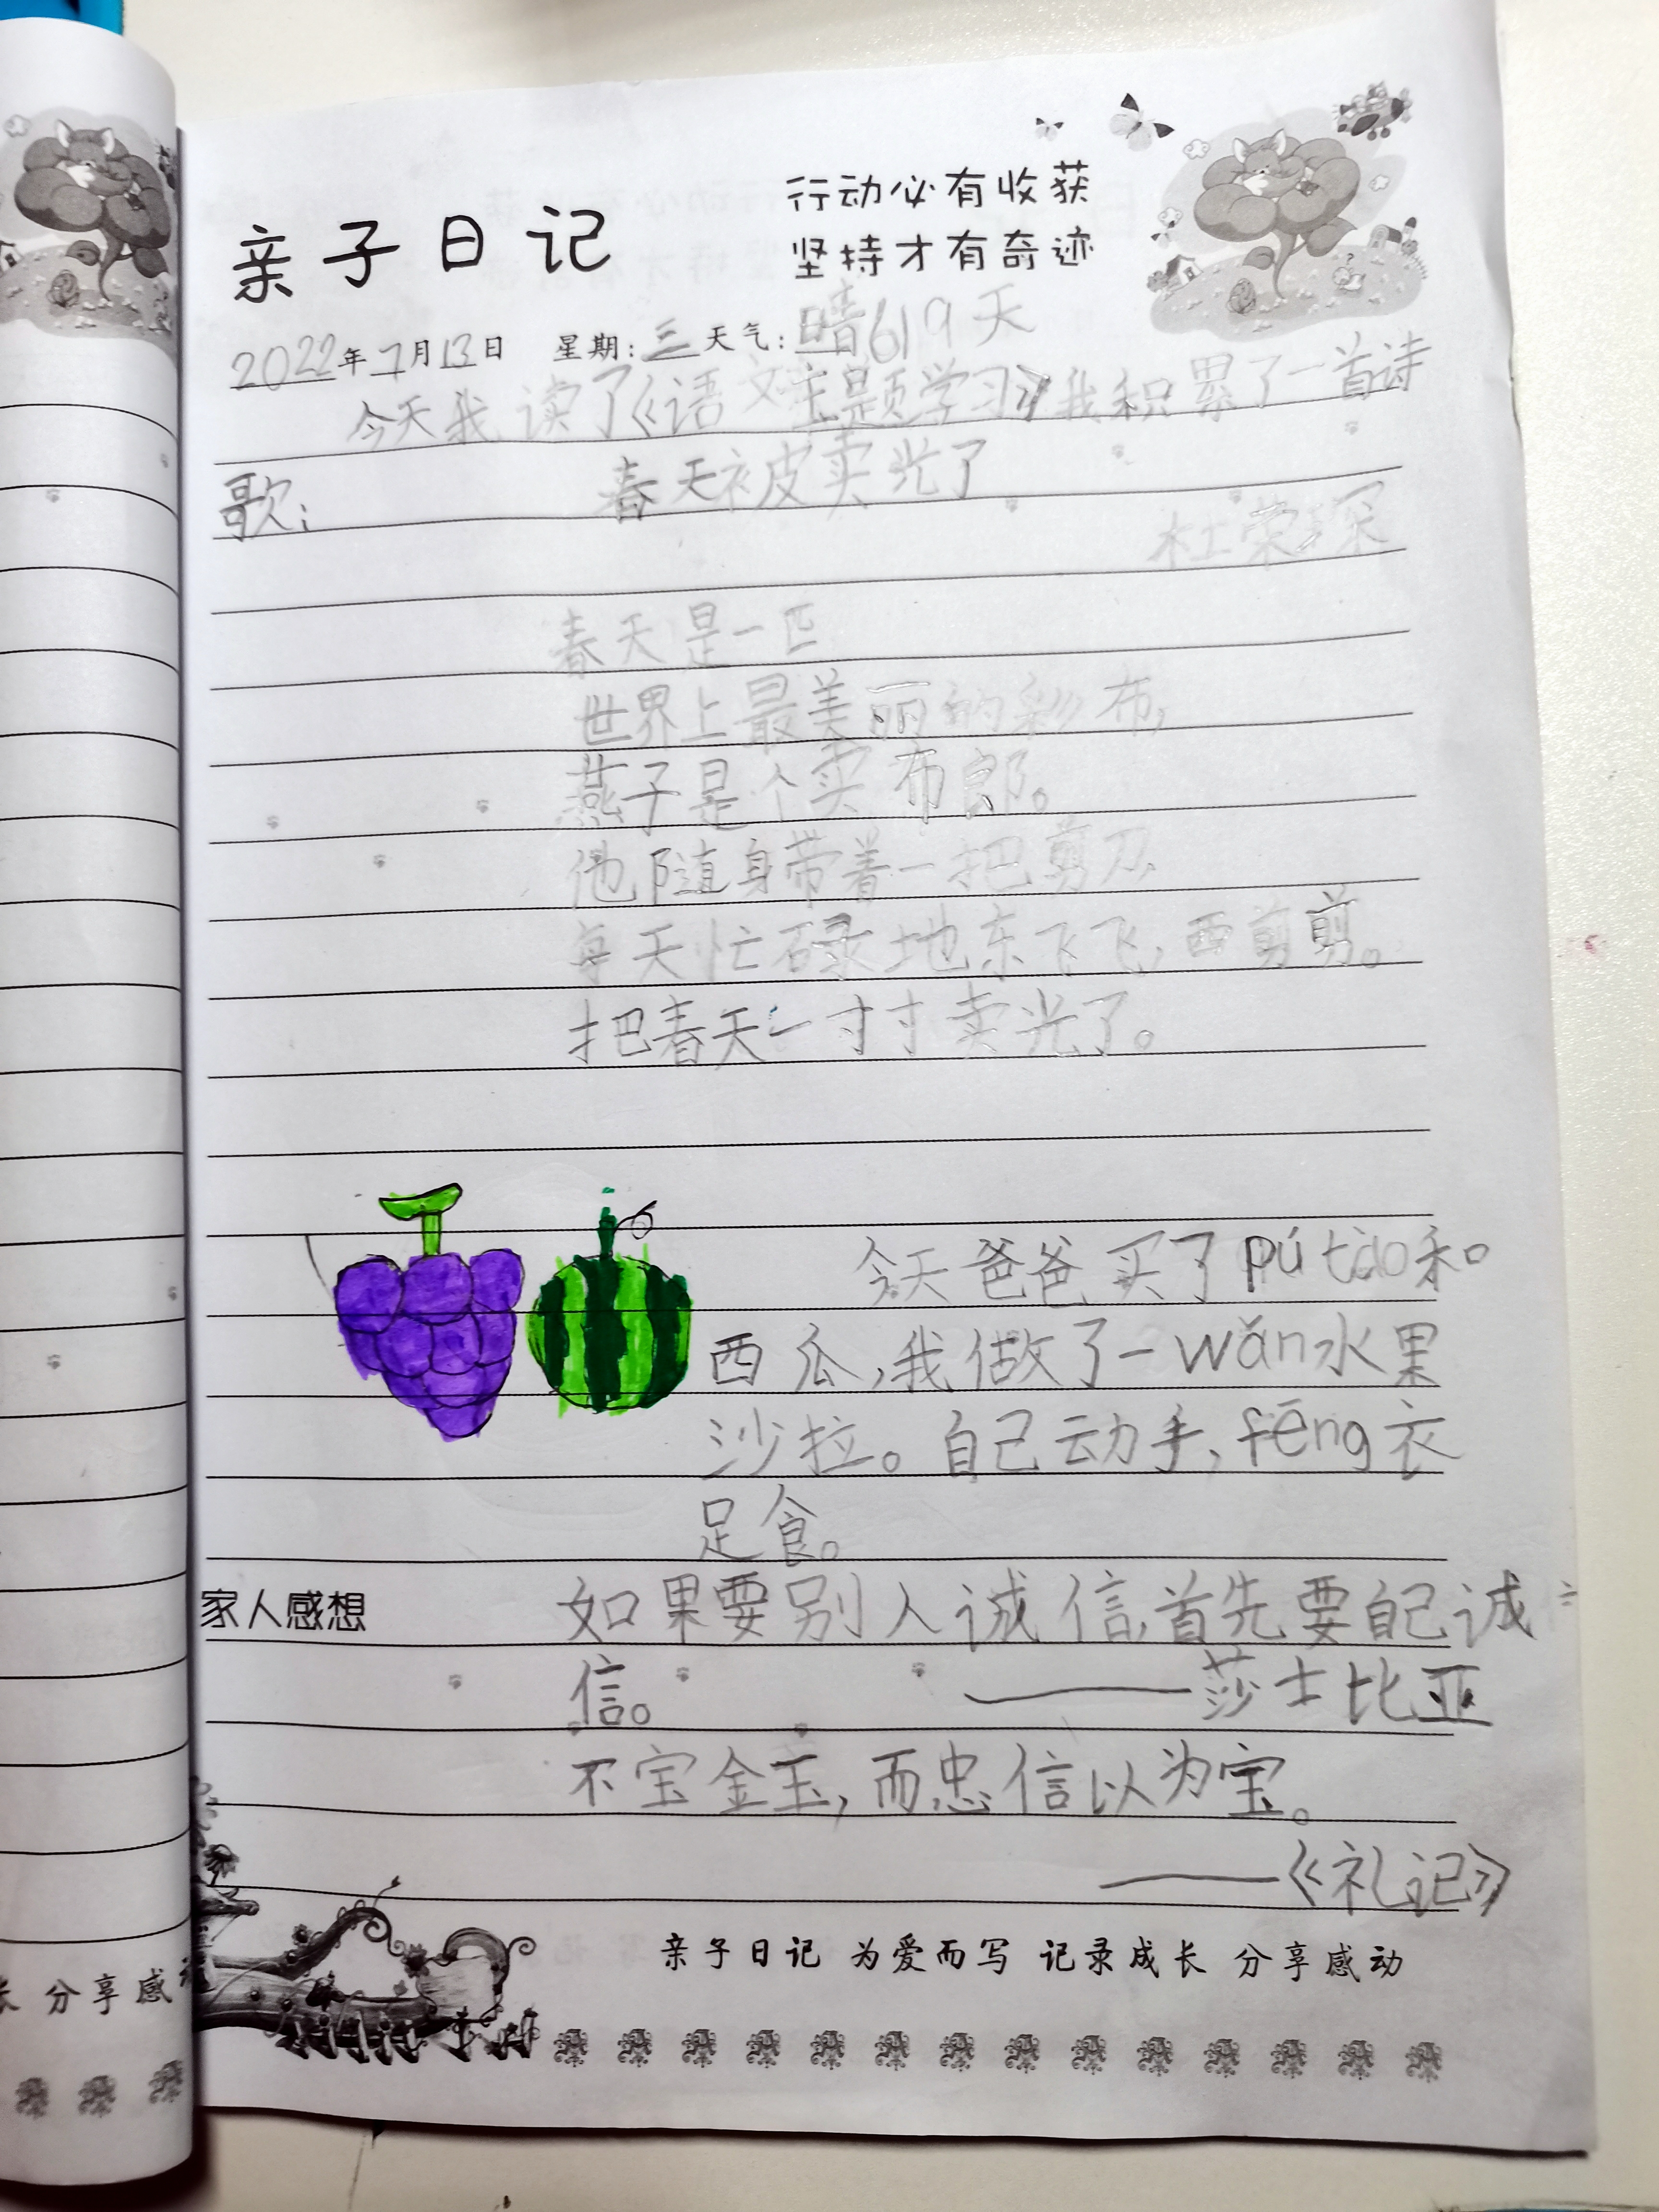 亲子日记
行动必有收获
坚持才有奇迹
2022年7月13日 星期:三 天气:晴 619天
今天我读了《语文主题学习》我积累了一首诗
歌:
春天被卖光了
杜荣琛
春天是一匹
世界上最美丽的彩布,
燕子是个卖布郎。
他随身带着一把剪刀,
每天忙碌地东飞飞,西剪剪。
把春天一寸寸卖光了。
今天爸爸买了pú tào和
西瓜,我做了一wǎn水果
沙拉。自己动手,fēng衣
足食。
家人感想
如果要别人诚信,首先要自己诚
信。 ——莎士比亚
不宝金玉,而忠信以为宝。
——《礼记》
亲子日记 为爱而写 记录成长 分享感动
长 分享感动